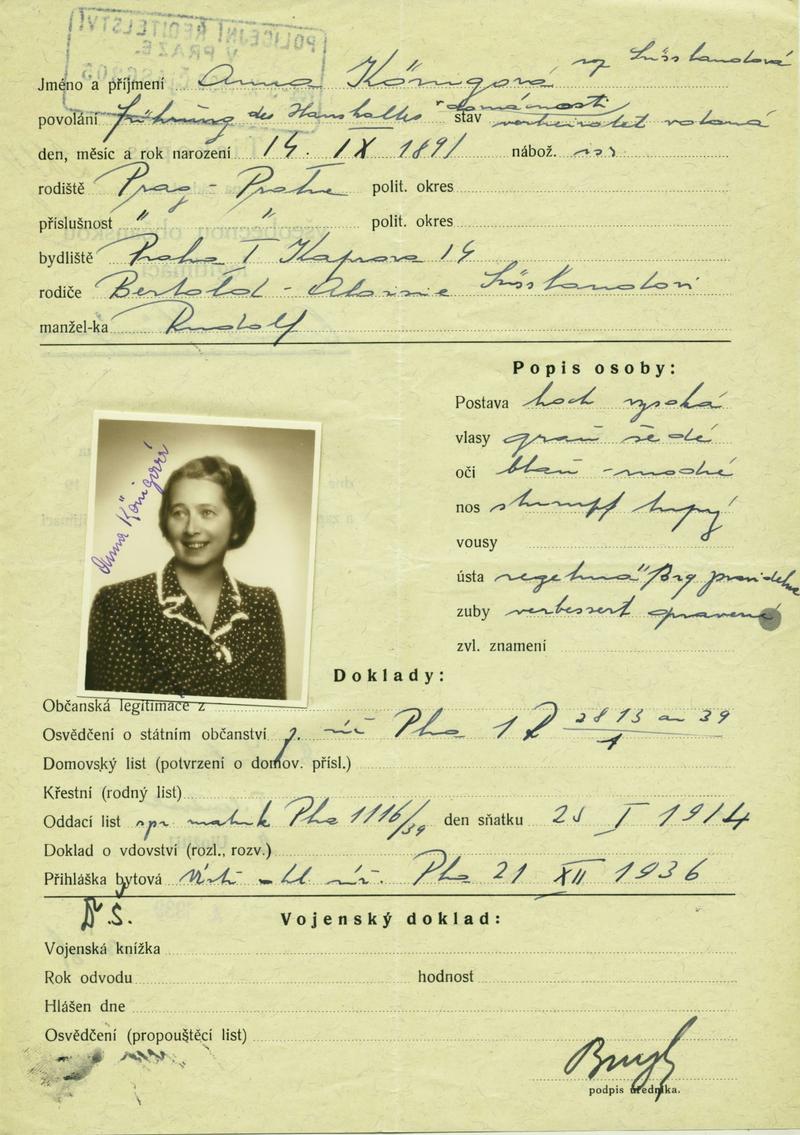 POLICEJNÍ ŘEDITELSTVÍ
V PRAZE
Jméno a příjmení Anna Königová roz Süsslandová
povolání führung des Haushaltes domácnosti stav verheiratet vdaná
den, měsíc a rok narození 14. IX 1891 nábož.
rodiště Prag - Praha polit. okres
příslušnost " " polit. okres
bydliště Praha I Kaprova 14
rodiče Bertold -
manžel-ka Rudolf
Popis osoby:
Postava hoch vysoká
vlasy grau šedé
oči blau - modré
nos stumpf tupý
vousy
ústa regelmä pravidelná
zuby verbessert opravené
zvl. znamení
Anna Königová
Doklady:
Občanská legitimace z
Osvědčení o státním občanství Pha 1 2813 39 1
Domovský list (potvrzení o domov. přísl.)
Křestní (rodný list)
Oddací list spr matrik Pha 1116/39 den sňatku 25 I 1914
Doklad o vdovství (rozl., rozv.)
Přihláška bytová Pha 21 XII 1936
D.S.
Vojenský doklad:
Vojenská knížka
Rok odvodu hodnost
Hlášen dne
Osvědčení (propouštěcí list)
podpis úředníka.